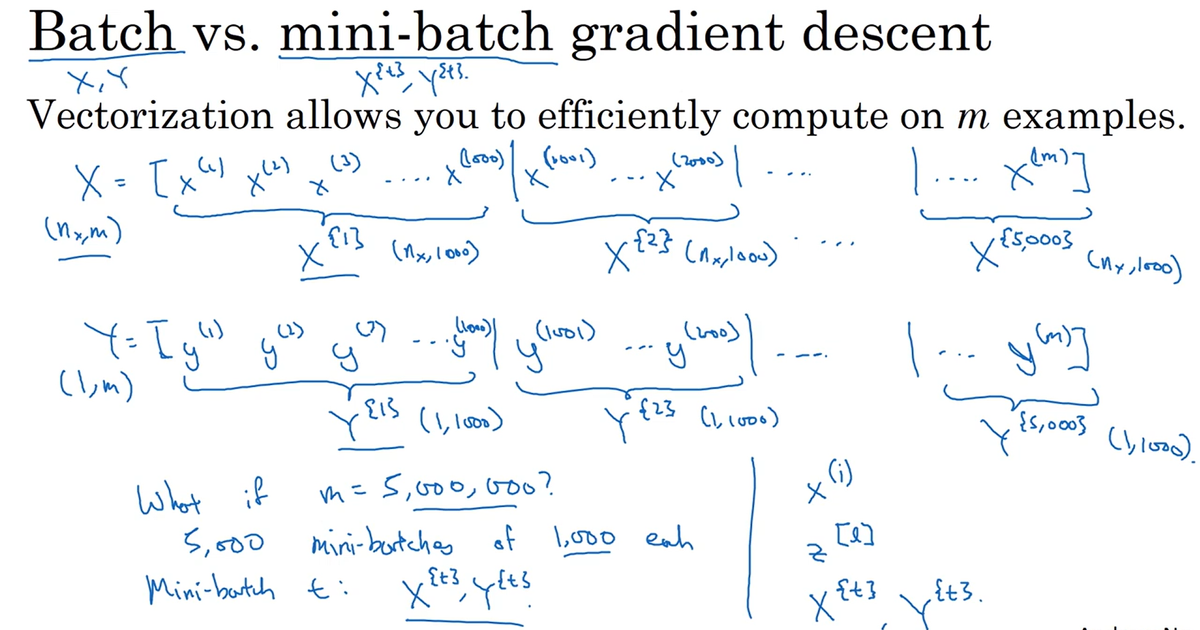 Batch vs. mini-batch gradient descent
X, Y X^{t}, Y^{t}.
Vectorization allows you to efficiently compute on m examples.
X = [x^(1) x^(2) x^(3) .... x^(1000) | x^(1001) ... x^(2000) | .... | .... x^(m)]
(n_x, m)
X^{1} (n_x, 1000) X^{2} (n_x, 1000) .... X^{5,000} (n_x, 1000)
Y = [y^(1) y^(2) y^(3) ... y^(1000) | y^(1001) ... y^(2000) | .... | ... y^(m)]
(1, m)
Y^{1} (1, 1000) Y^{2} (1, 1000) Y^{5,000} (1, 1000).
What if m = 5,000,000?
5,000 mini-batches of 1,000 each
Mini-batch t: X^{t}, Y^{t}.
x^(i)
z^[l]
X^{t} Y^{t}.